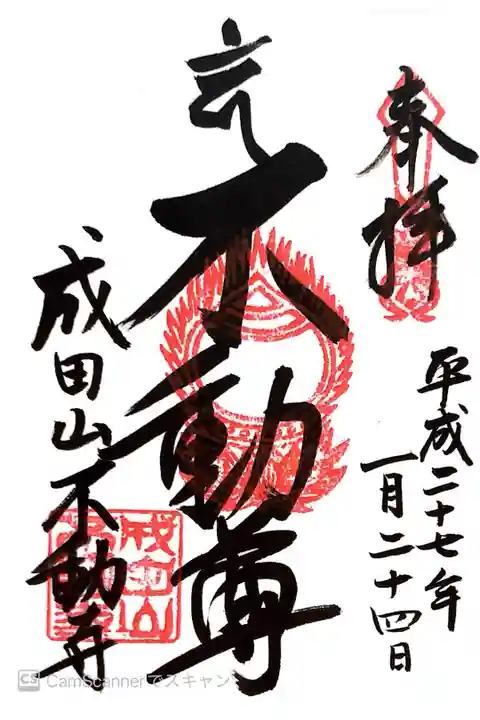 奉拝
平成二十七年
一月二十四日
不動尊
成田山不動寺
CS CamScannerでスキャン